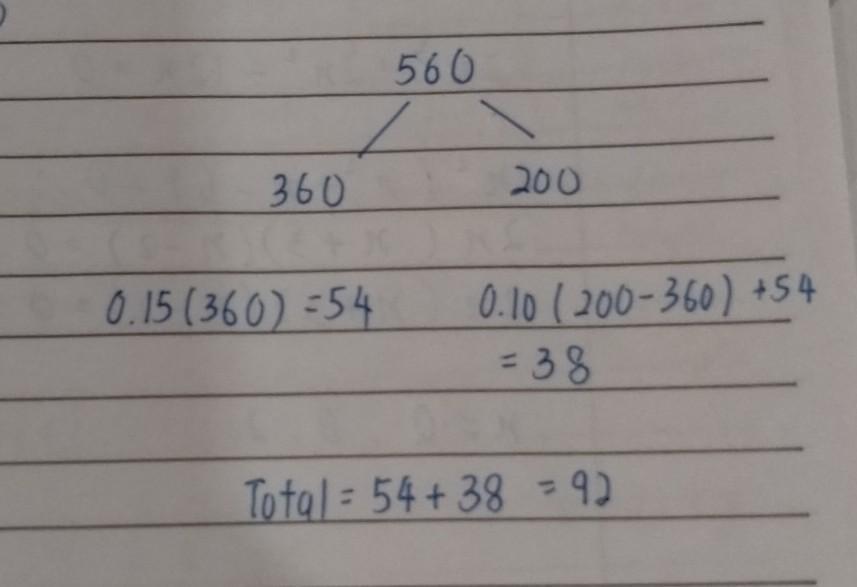 560
360 200
0.15(360) = 54 0.10(200-360) +54
= 38
Total = 54 + 38 = 92